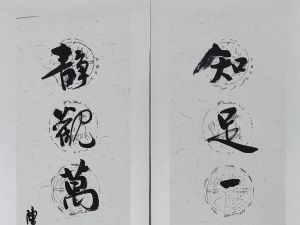 知足一
靜觀萬